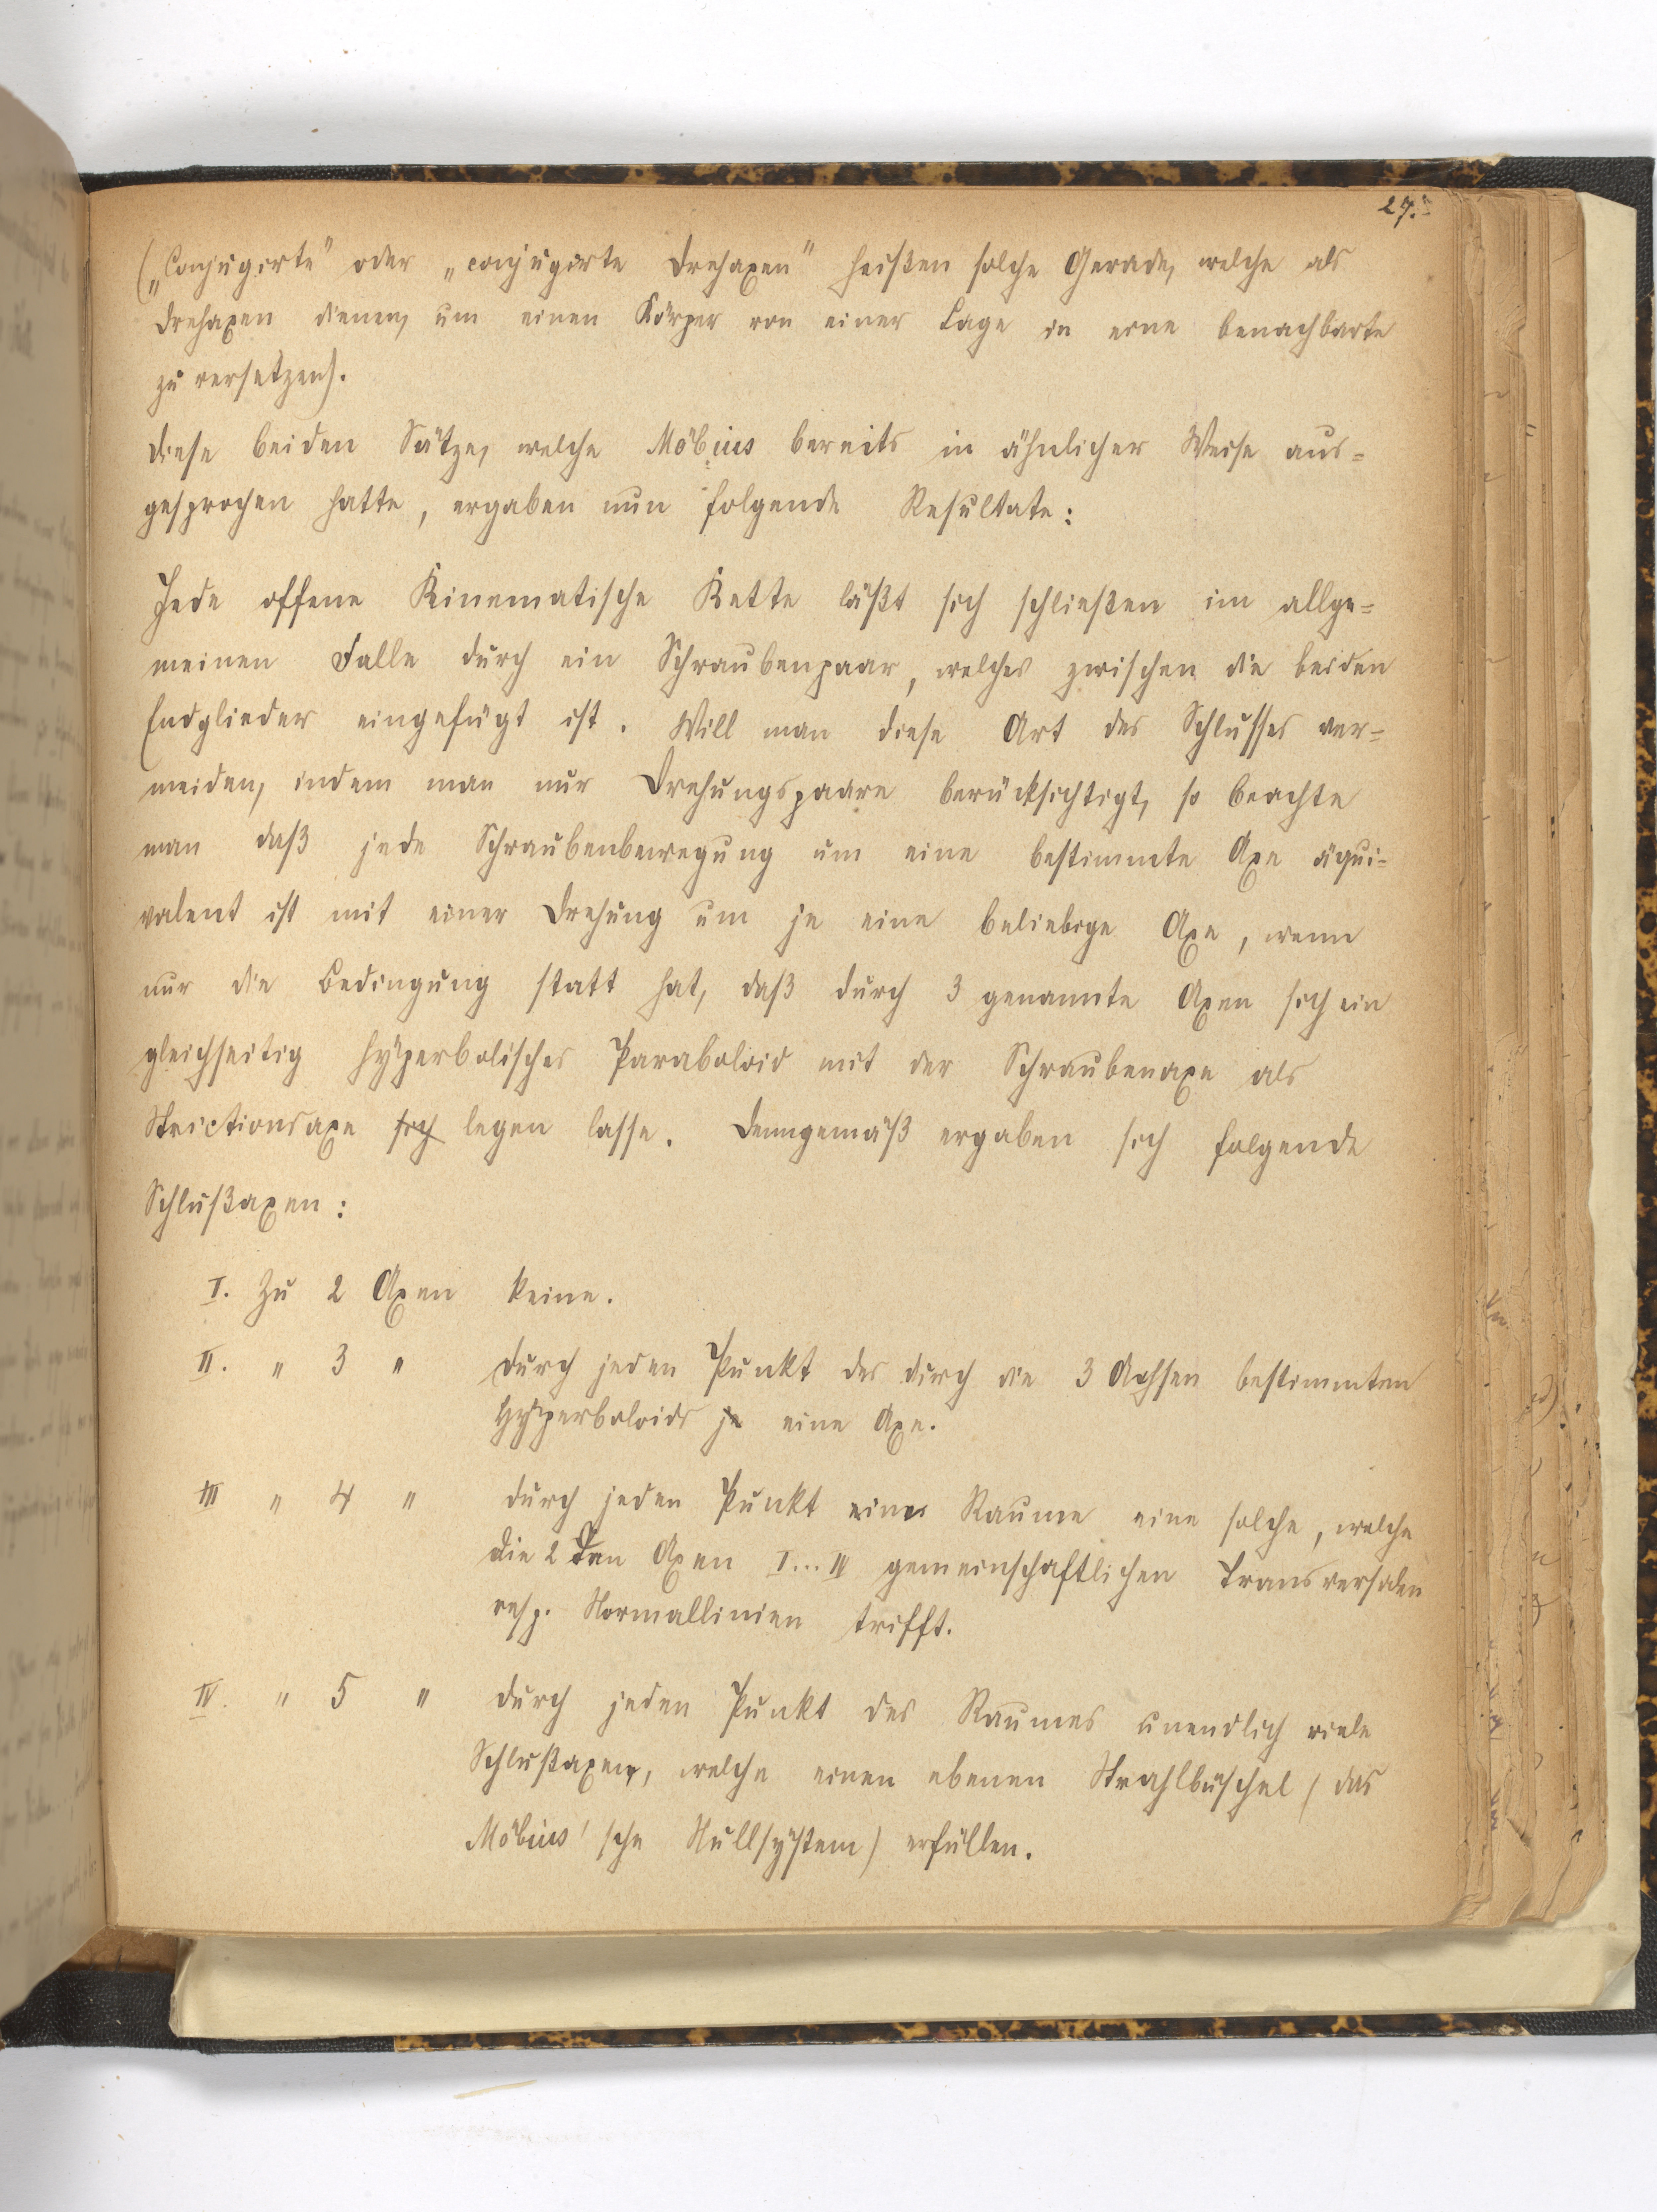 27.
(„Conjugirte" oder „conjugirte Drehaxen" heißen solche Gerade, welche als
Drehaxen dienen, um einen Körper von einer Lage in eine benachbarte
zu versetzen).
Diese beiden Sätze, welche Möbius bereits in ähnlicher Weise aus=
gesprochen hatte, ergaben nun folgende Resultate:
Jede offene Kinematische Kette läßt sich schließen im allge=
meinen Falle durch ein Schraubenpaar, welches zwischen die beiden
Endglieder eingefügt ist. Will man diese Art des Schlusses ver=
meiden, indem man nur Drehungspaare berücksichtigt, so beachte
man daß jede Schraubenbewegung um eine bestimmte Axe äqui=
valent ist mit einer Drehung um je eine beliebige Axe, wenn
nur die Bedingung statt hat, daß durch 3 genannte Axen sich ein
gleichseitig hyperbolisches Paraboloid mit der Schraubenaxe als
Strictionsaxe sich legen lasse. Demgemäß ergaben sich folgende
Schlußaxen:
I. Zu 2 Axen keine.
II. " 3 " durch jeden Punkt des durch die 3 Achsen bestimmten
Hyperboloids je eine Axe.
III " 4 " durch jeden Punkt eines Raume eine solche, welche
die 2 den Axen I...IV gemeinschaftlichen Transversalen
resp. Normallinien trifft.
IV. " 5 " durch jeden Punkt des Raumes unendlich viele
Schlußaxen, welche einen ebenen Strahlbüschel (das
Möbius'sche Nullsystem) erfüllen.